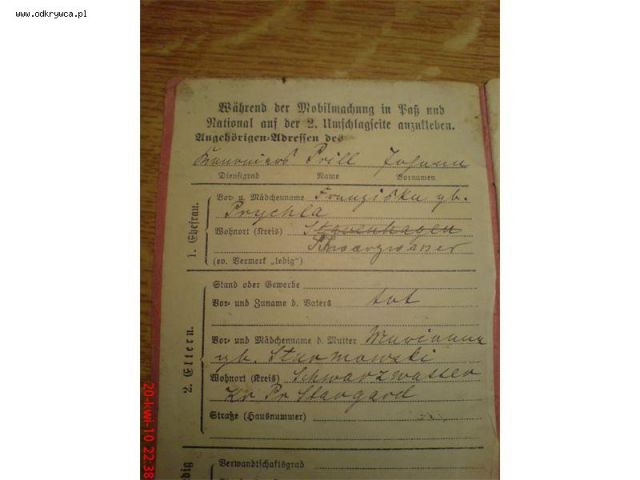 www.odkrywca.pl
Während der Mobilmachung in Paß und
National auf der 2. Umschlagseite anzukleben.
Angehörigen-Adressen des
Prill Johann
Dienstgrad Name Vornamen
1. Ehefrau.
Vor- u. Mädchenname Franziska gb.
Prychla
Wohnort (Kreis)
Schwarzwasser
(ev. Vermerk „ledig“)
2. Eltern.
Stand oder Gewerbe
Vor- und Zuname d. Vaters tot
Vor- und Mädchenname d. Mutter Marianna
gb. Sturmowski
Wohnort (Kreis) Schwarzwasser
Kr Pr Stargard
Straße (Hausnummer)
Verwandtschaftsgrad
20-kwi-10 22:38